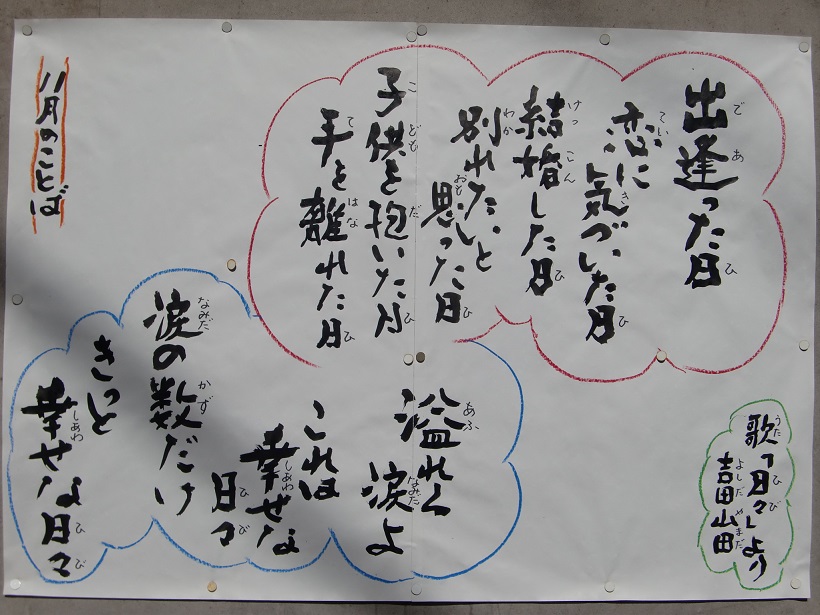 11月のことば
出逢った日
恋に気づいた日
結婚した日
別れたいと
思った日
子供を抱いた日
手を離れた日
溢れく
涙よ
これは
幸せな
日々
涙の数だけ
きっと
幸せな日々
歌「日々」より
吉田山田